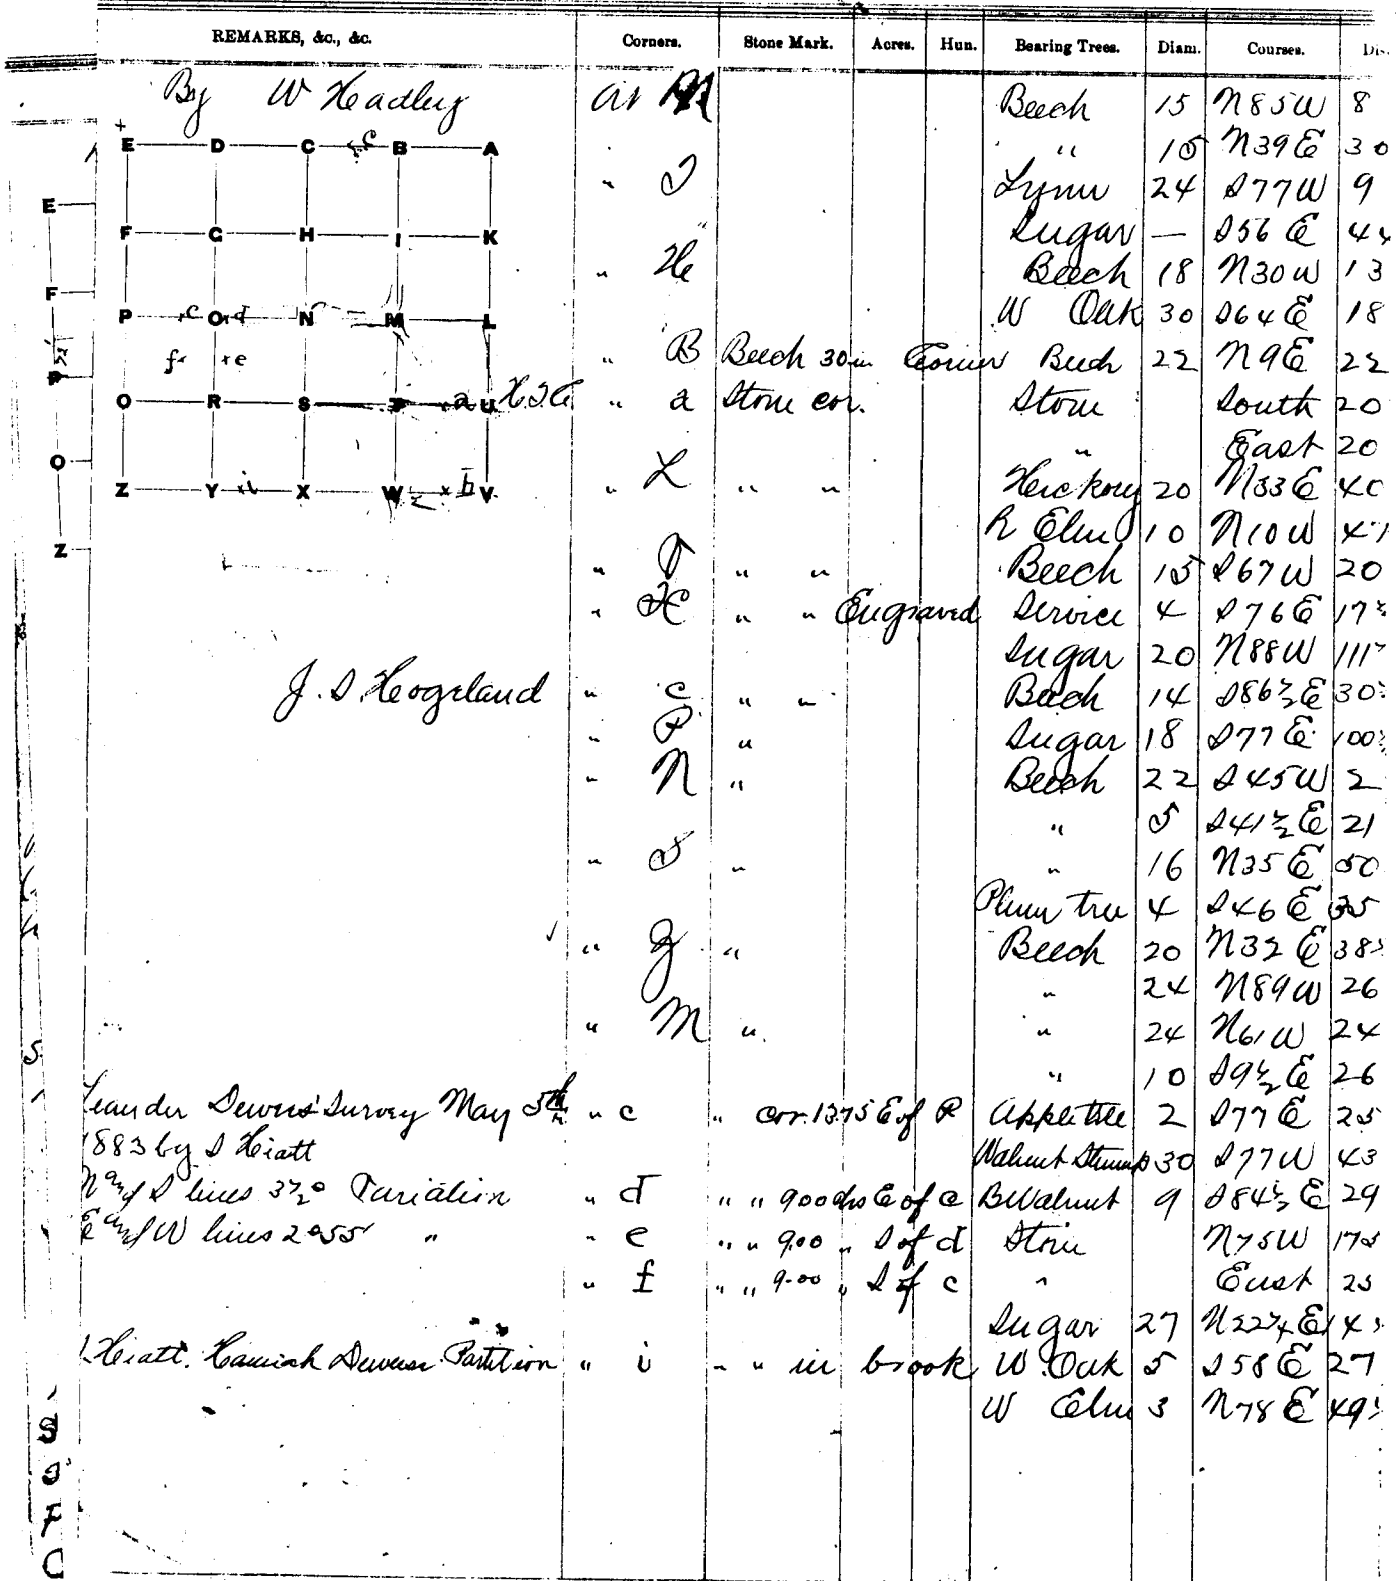 REMARKS, &c., &c. Corners. Stone Mark. Acres. Hun. Bearing Trees. Diam. Courses. Dis.
By W Headley at M Beech 15 N85W 8
" 15 N39E 30
E D C c B A
" J Lynn 24 S77W 9
E
F G H I K
Sugar — S56E 44
" H Beech 18 N30W 13
F
P c O d N M L
W Oak 30 S64E 18
f e
" B Beech 30 in Corner Beech 22 N9E 22
P
Q R S T a U
" a Stone cor. Stone South 20
" East 20
Q
Z Y i X W b V
" L " " Hickory 20 N33E 40
R Elm 10 N10W 47
Z
" " " Beech 15 S67W 20
" H " " Engraved Service 4 S76E 17½
Sugar 20 N88W 111
J. S. Hogeland " c " " Beech 14 S86½E 30
" P " Sugar 18 S77E 100
" N " Beech 22 S45W 2
" 5 S41½E 21
" S " " 16 N35E 50
Plum tree 4 S46E 35
" " Beech 20 N32E 38
" 24 N89W 26
" M " " 24 N61W 24
" 10 S9½E 26
Leander Dewees' Survey May 5th " c " cor. 13.75 E of P Apple tree 2 S77E 25
1883 by S Hiatt Walnut Stump 30 S77W 43
N and S lines 3½° Variation " d " " 900 chs E of c B Walnut 9 S84½E 29
E and W lines 2°55' " " e " " 9.00 " S of d Stone N75W 175
" f " " 9.00 " S of c " East 25
Sugar 27 N22¼E 14
Hiatt. Hannah Dewees Partition " i " " in brook W. Oak 5 S58E 27
W Elm 3 N78E 49